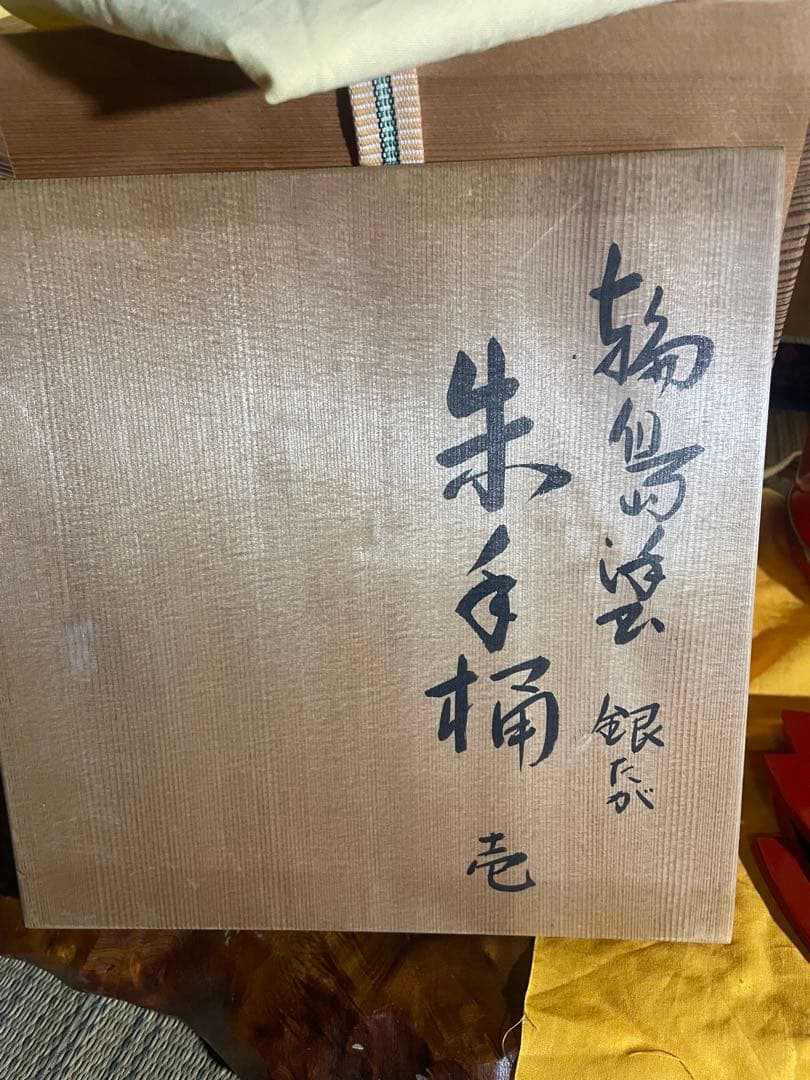 輪島塗 銀たが
朱手桶 壱